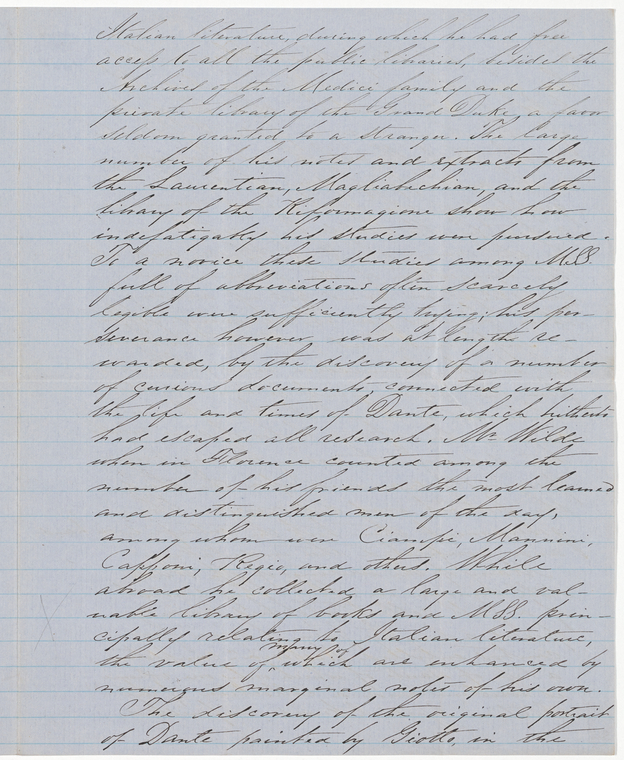 Italian literature, during which he had free
access to all the public libraries, besides the
Archives of the Medici family and the
private library of the Grand Duke, a favor
seldom granted to a stranger. The large
number of his notes and extracts from
the Laurentian, Magliabechian, and the
library of the Riformagione show how
indefatigably his studies were pursued.
To a novice these studies among MSS.
full of abbreviations often scarcely
legible were sufficiently trying; his per-
severance however was at length re-
warded, by the discovery of a number
of curious documents connected with
the life and times of Dante, which hitherto
had escaped all research. Mr. Wilde
when in Florence counted among the
number of his friends the most learned
and distinguished men of the day,
among whom were Ciampi, Mannini,
Capponi, Regio, and others. While
abroad he collected a large and val-
uable library of books and MSS. prin-
cipally relating to Italian literature,
many of
the value of which are enhanced by
numerous marginal notes of his own.
The discovery of the original portrait
of Dante painted by Giotto, in the